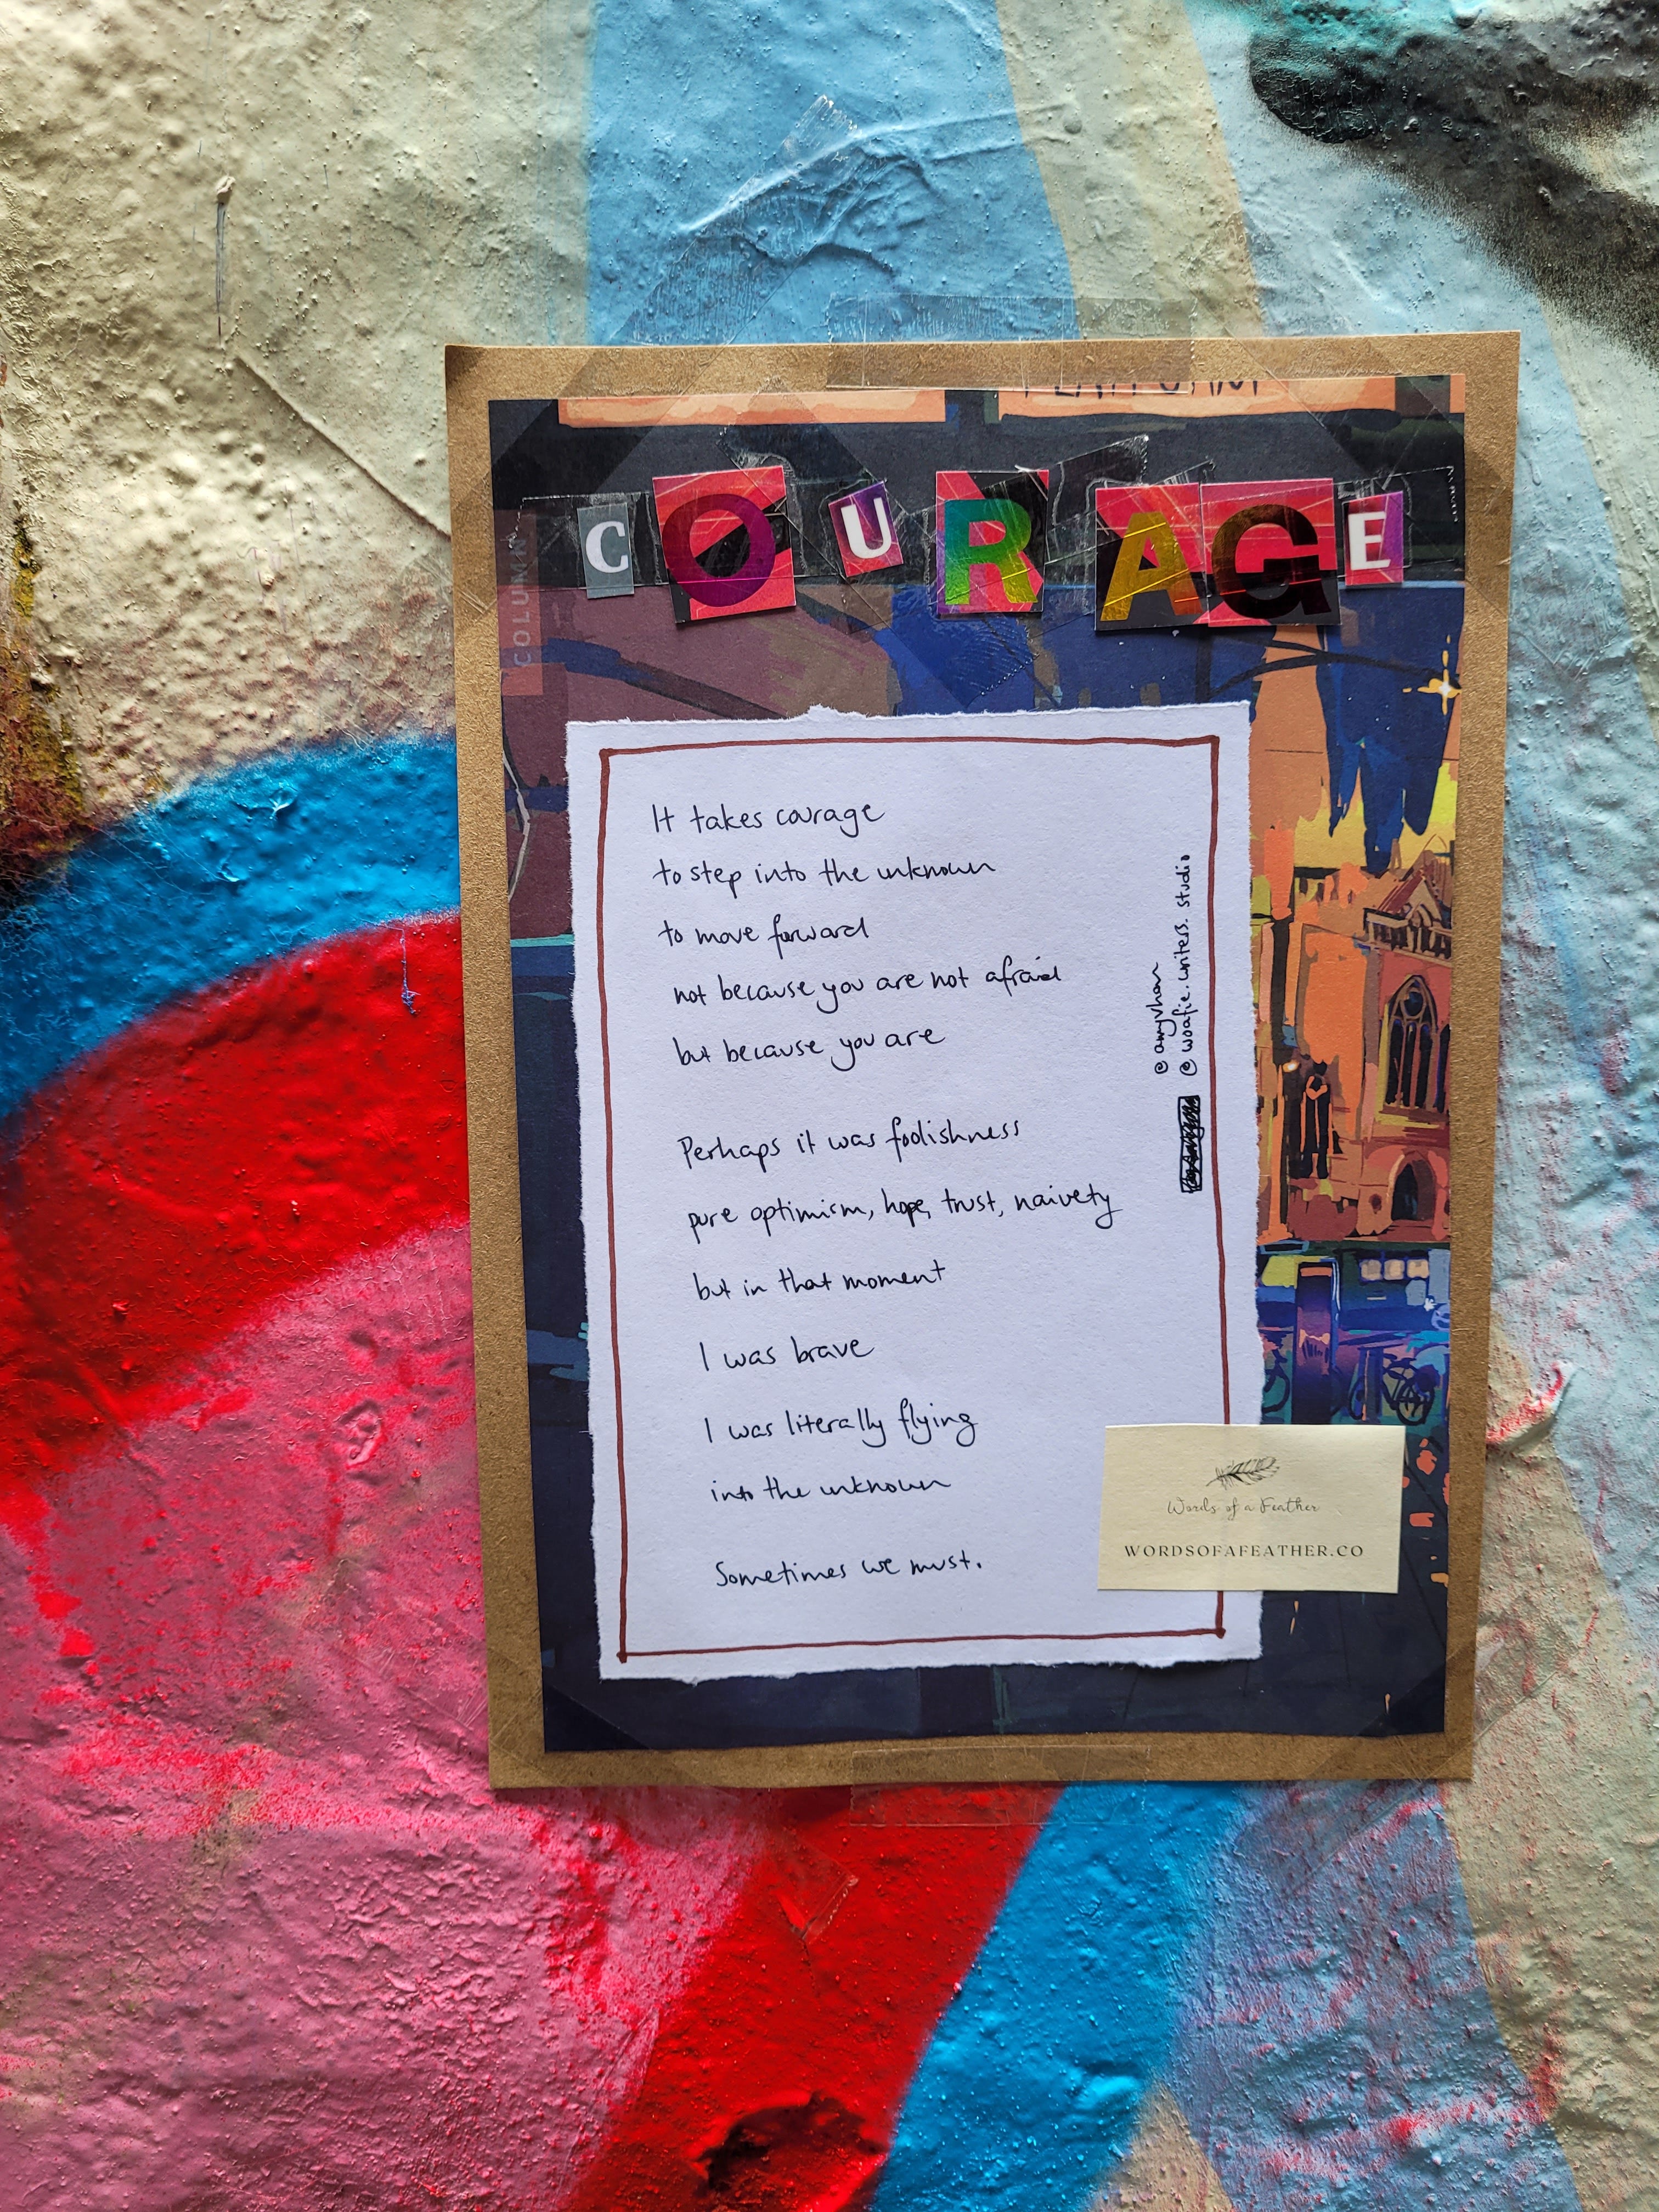 COURAGE
COLUMN
It takes courage
to step into the unknown
to move forward
not because you are not afraid
but because you are
Perhaps it was foolishness
pure optimism, hope, trust, naivety
but in that moment
I was brave
I was literally flying
into the unknown
Sometimes we must.
@amyvhan
@woafie.writers.studio
Words of a Feather
WORDSOFAFEATHER.CO